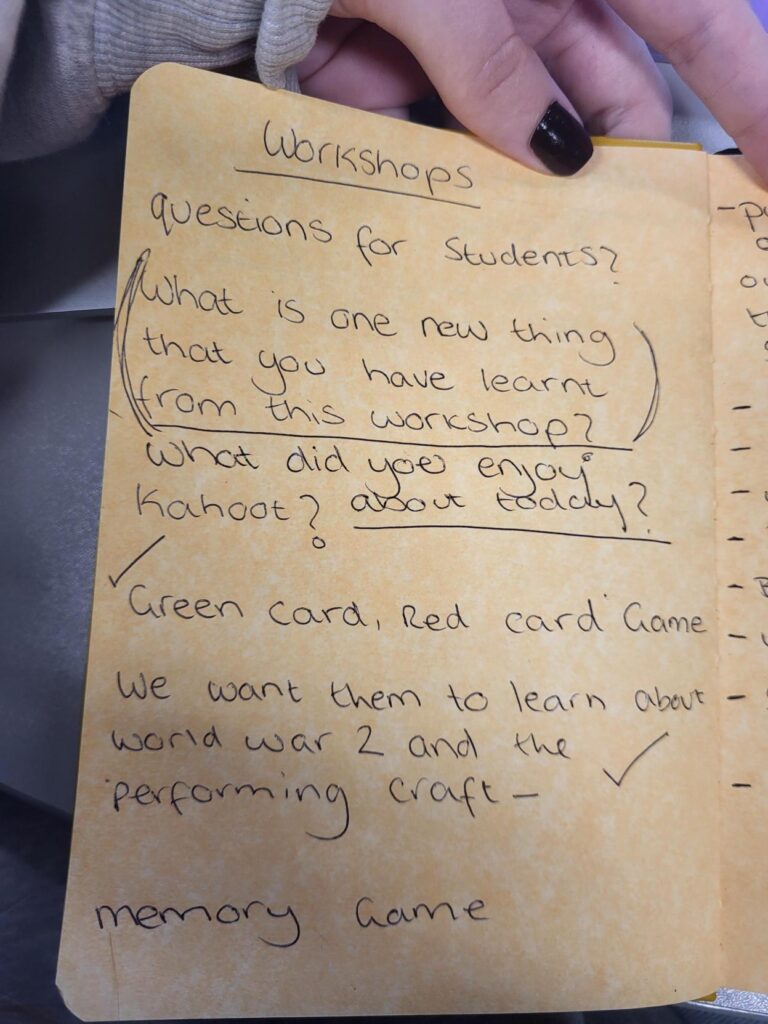 Workshops
questions for Students?
(What is one new thing
that you have learnt
from this workshop?)
What did you enjoy
Kahoot? about today?
✓
Green card, Red card Game
We want them to learn about
world war 2 and the
performing craft - ✓
memory Game